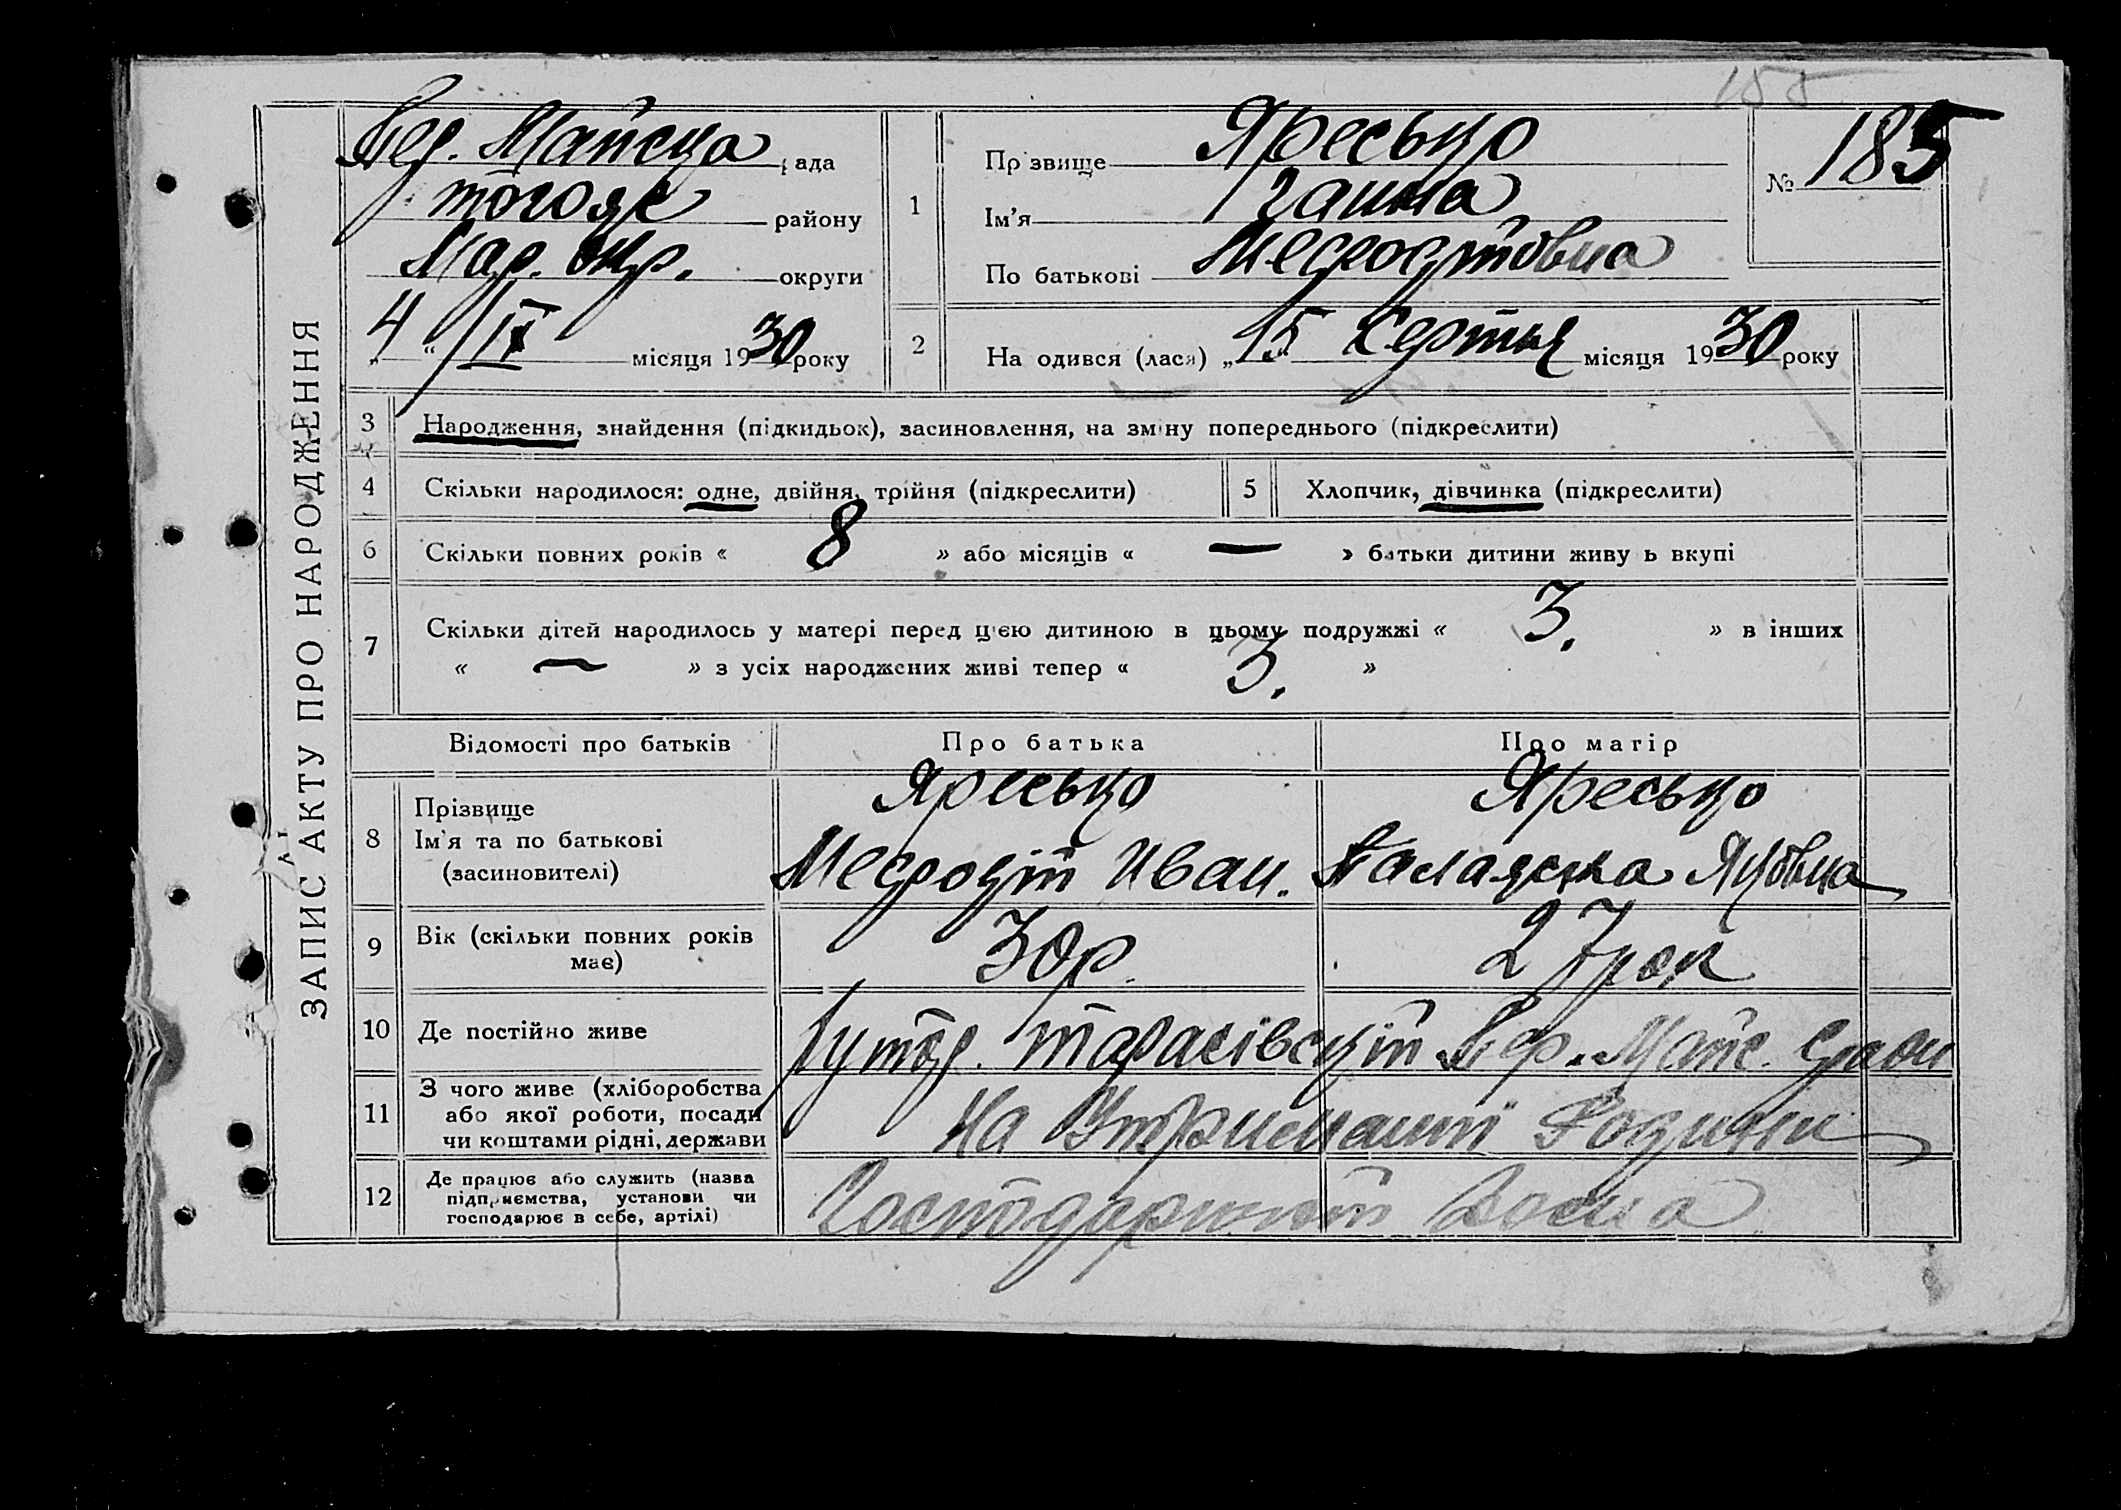 155
ЗАПИС АКТУ ПРО НАРОДЖЕННЯ
Вер. Майська рада
тогож району
Мар. окр. округи
„4“ IX місяця 1930 року
1
Прізвище Яресько
Ім’я Ганна
По батькові Мефодітовна
№ 185
2
На одився (лася) „15 Серпня місяця 1930 року
3 Народження, знайдення (підкидьок), засиновлення, на зміну попереднього (підкреслити)
4 Скільки народилося: одне, двійня, трійня (підкреслити)
5 Хлопчик, дівчинка (підкреслити)
6 Скільки повних років « 8 » або місяців « — » батьки дитини живу ь вкупі
7 Скільки дітей народилось у матері перед цією дитиною в цьому подружжі « 3. » в інших
« — » з усіх народжених живі тепер « 3. »
Відомості про батьків Про батька Про матір
8 Прізвище
Ім’я та по батькові
(засиновителі)
Яресько
Мефодій Иван.
Яресько
Яковна
9 Вік (скільки повних років
має)
30 р.
27 рок
10 Де постійно живе
хутор. Тарасівский Вер. Майс. с/ради
11 З чого живе (хліборобства
або якої роботи, посади
чи коштами рідні, держави
На Утриманні Родини
12 Де працює або служить (назва
підприємства, установи чи
господарює в себе, артілі)